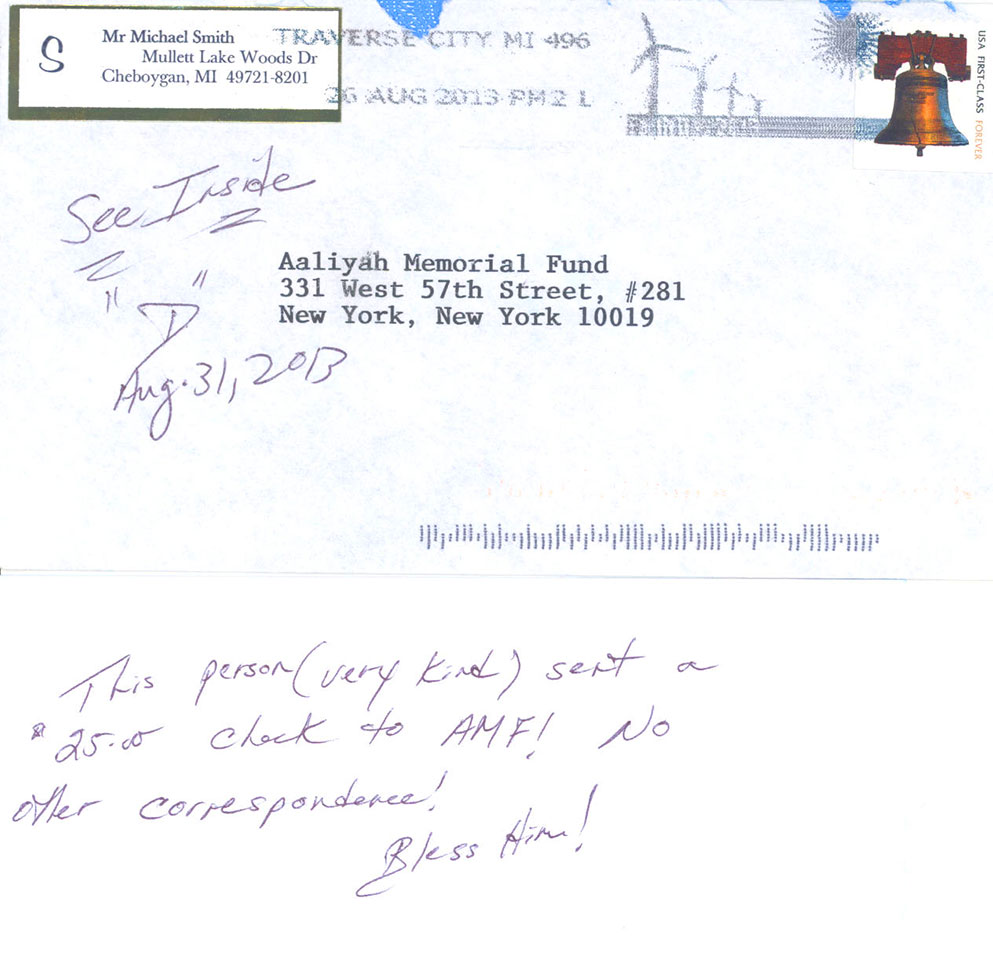 S
Mr Michael Smith
Mullett Lake Woods Dr
Cheboygan, MI 49721-8201
TRAVERSE CITY MI 496
26 AUG 2013 PM 2 L
USA FIRST-CLASS FOREVER
See Inside
"D"
Aug. 31, 2013
Aaliyah Memorial Fund
331 West 57th Street, #281
New York, New York 10019
This person (very kind) sent a
$25.00 check to AMF! No
other correspondence!
Bless Him!